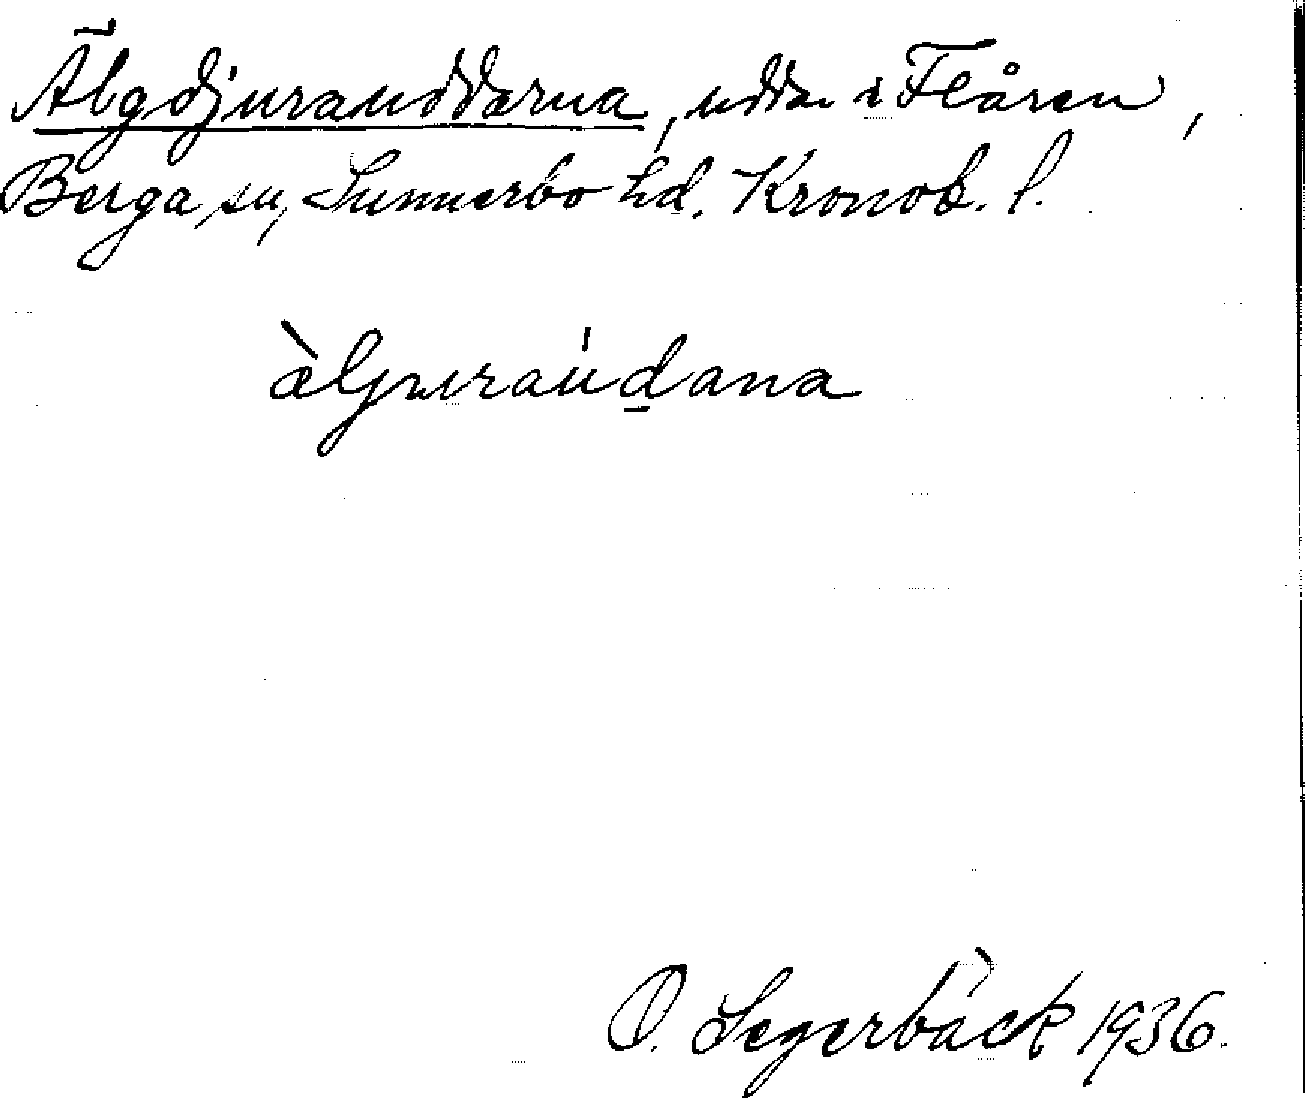 Älgdjurauddarna, uddar i Flåren,
Berga sn, Sunnerbo hd. Kronob. l.
æ̀ljuraúdana
O. Segerbäck 1936.